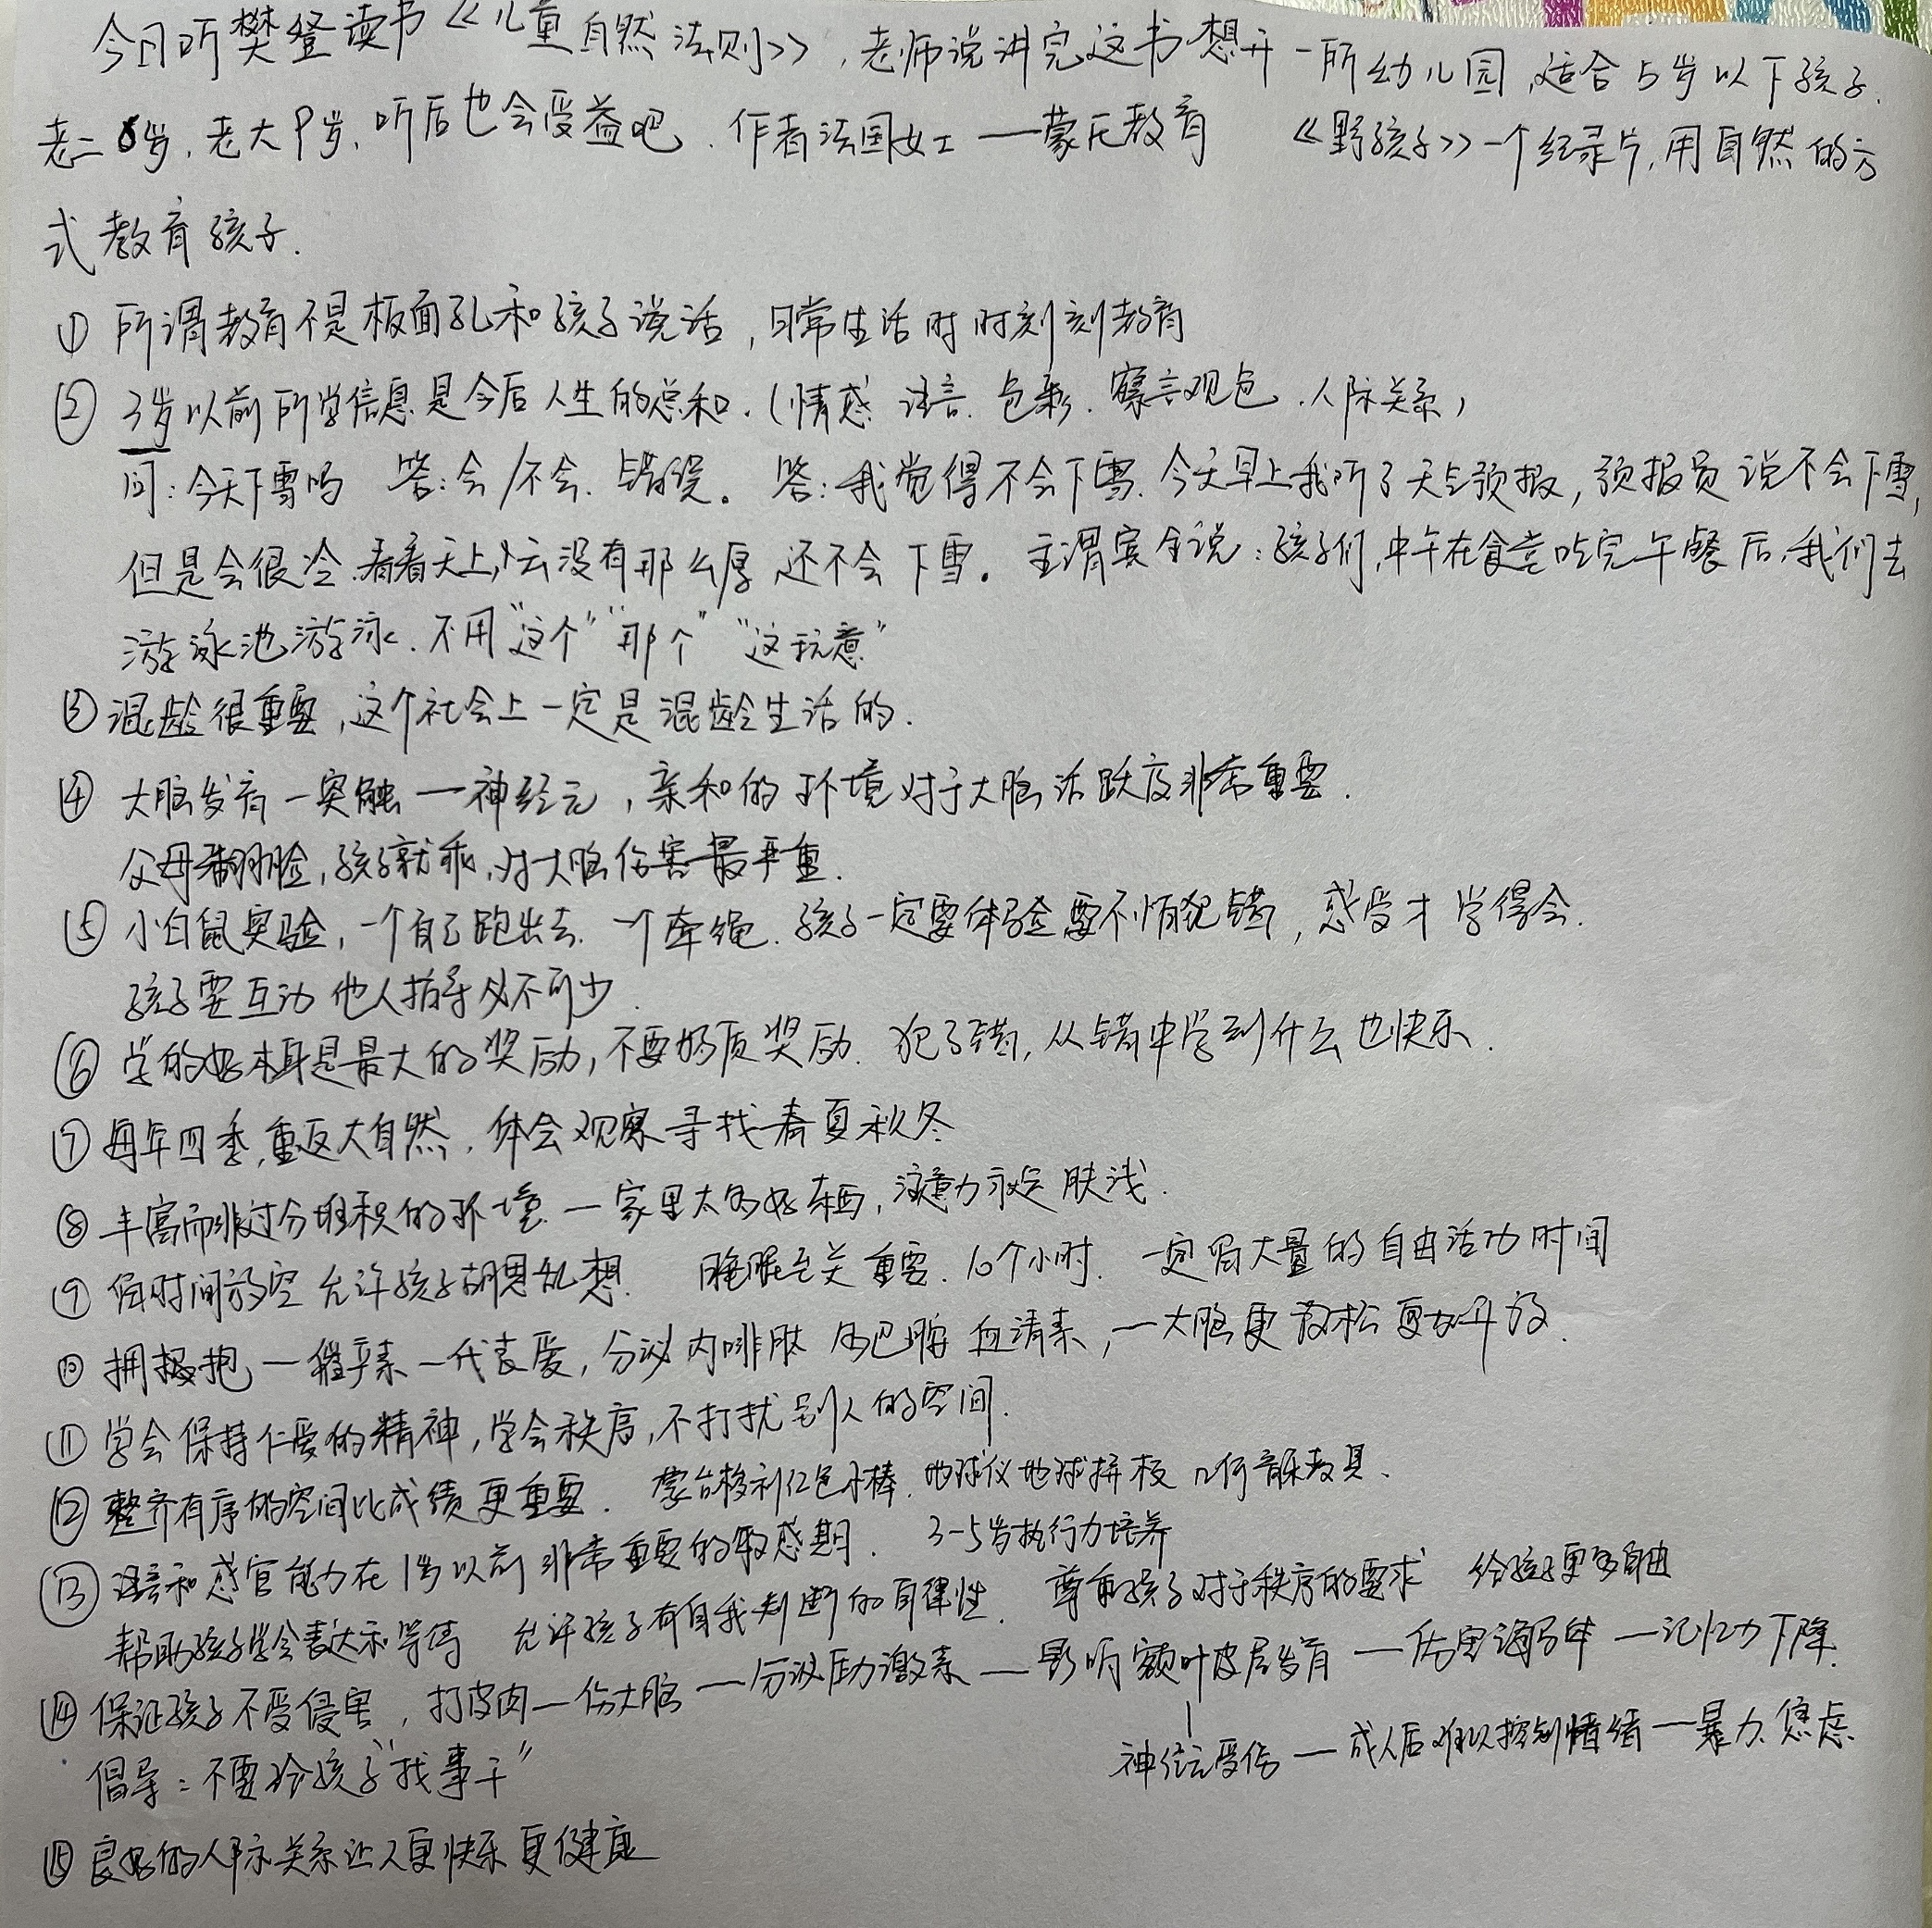 今日听樊登读书《儿童自然法则》，老师说讲完这书想开一所幼儿园，适合5岁以下孩子.
老二6岁，老大9岁，听后也会受益吧．作者法国女士——蒙氏教育 《野孩子》一个纪录片，用自然的方
式教育孩子.
① 所谓教育不是板面孔和孩子说话，日常生活时时刻刻教育
② 3岁以前所学信息是今后人生的总和．（情感 语言．色彩．察言观色．人际关系）
问：今天下雪吗 答：会/不会．错误。 答：我觉得不会下雪．今天早上我听了天气预报，预报员说不会下雪，
但是会很冷．看看天上，云没有那么厚，还不会下雪。 主谓宾全说：孩子们，中午在食堂吃完午餐后，我们去
游泳池游泳．不用“这个”“那个”“这玩意”
③ 混龄很重要，这个社会上一定是混龄生活的．
④ 大脑发育—突触—神经元，亲和的环境对于大脑活跃度非常重要．
父母翻脸，孩子就乖，对大脑伤害最严重．
⑤ 小白鼠实验，一个自己跑出去．一个牵绳．孩子一定要体验要不怕犯错，感受才学得会．
孩子要互动 他人指导必不可少．
⑥ 学的好本身是最大的奖励，不要物质奖励．犯了错，从错中学到什么也快乐．
⑦ 每年四季，重返大自然，体会观察寻找春夏秋冬
⑧ 丰富而非过分堆积的环境．—家里太多好东西，注意力永远肤浅．
⑨ 留时间放空 允许孩子胡思乱想． 睡眠至关重要．10个小时． 一定留大量的自由活动时间
⑩ 拥抱—催产素—代表爱，分泌内啡肽 多巴胺 血清素，—大脑更放松更加开放．
⑪ 学会保持仁爱的精神，学会秩序，不打扰别人的空间．
⑫ 整齐有序的空间比成绩更重要． 蒙台梭利红色木棒．地球仪地球拼板 几何 教具、
⑬ 语言和感官能力在1岁以前非常重要的敏感期． 3-5岁执行力培养
帮助孩子学会表达和等待 允许孩子有自我判断的自律性． 尊重孩子对于秩序的要求 给孩子更多自由
⑭ 保证孩子不受侵害，打皮肉—伤大脑—分泌压力激素—影响额叶皮层发育—伤害海马体—记忆力下降．
神经元受伤—成人后难以控制情绪—暴力、焦虑．
倡导：不要给孩子“找事干”
⑮ 良好的人际关系让人更快乐更健康